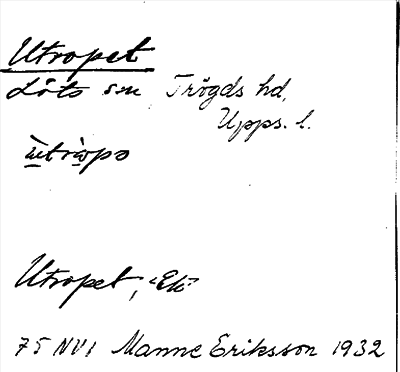 Utropet
Löts sn Trögds hd,
Upps. l.
ùtrò̱pə
Utropet, "Ek"
75 NV1 Manne Eriksson 1932